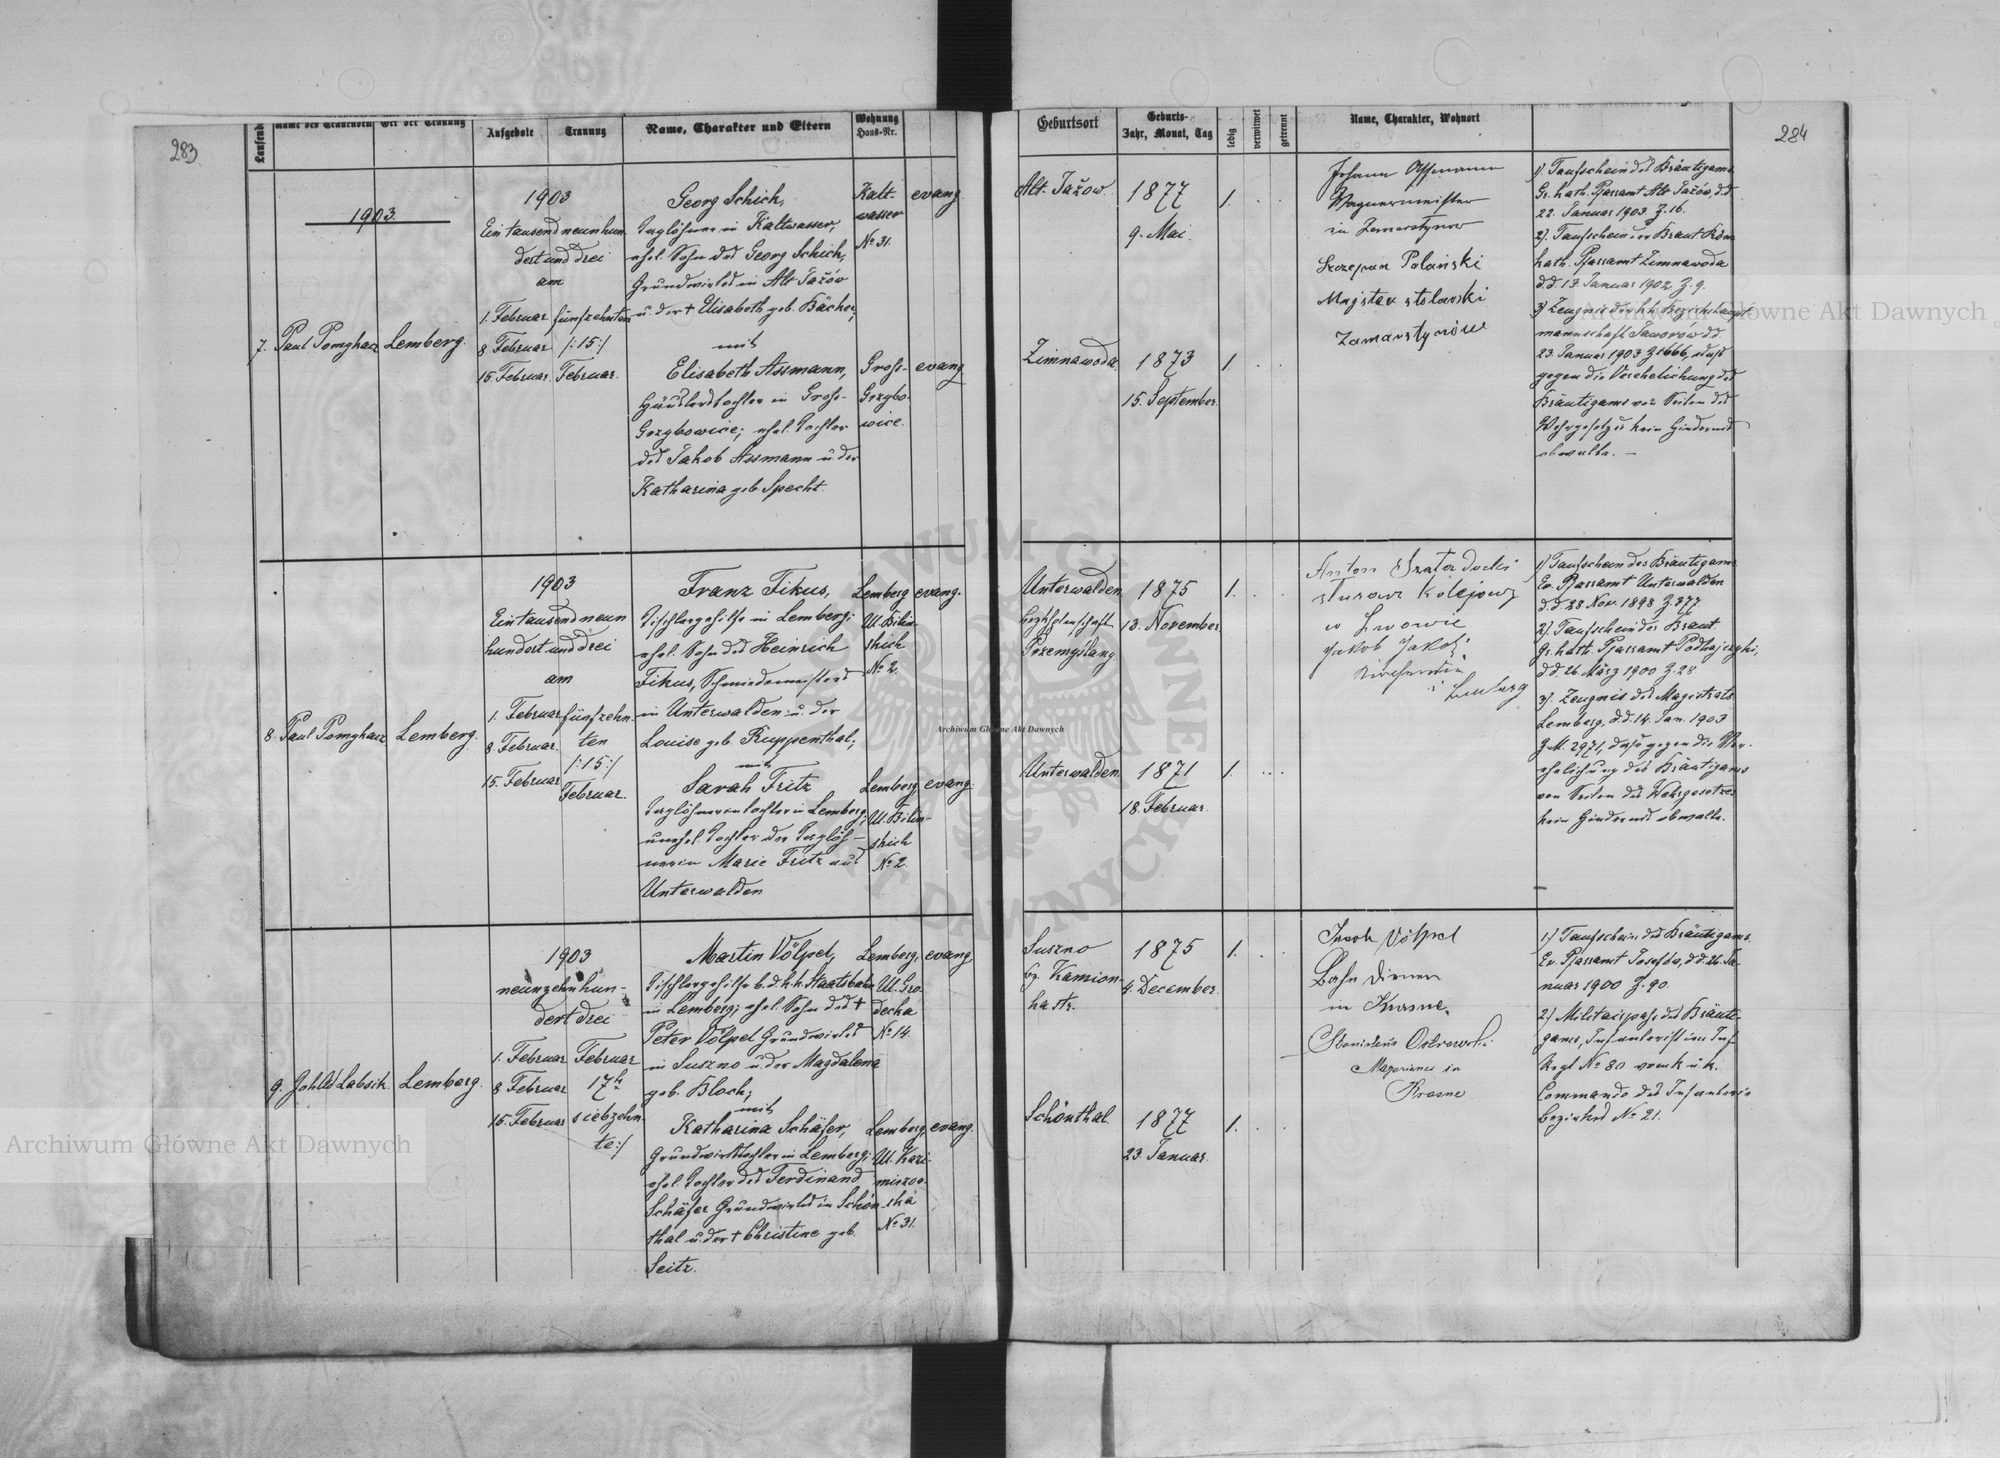 283
Laufende
Name des Trauenden
Ort der Trauung
Aufgebote
Trauung
Name, Charakter und Eltern
Wohnung
Haus-Nr.
1903.
7.
Paul Pomykacz
Lemberg.
1903
Ein tausend neunhun-
dert und drei
am
1. Februar fünfzehnten
8 Februar /:15:/
15. Februar. Februar.
Georg Schick,
Taglöhner in Kaltwasser,
ehel. Sohn des Georg Schick,
Grundwirtes in Alt Jažów
u. der † Elisabeth geb. Bäcker,
mit
Elisabeth Assmann,
Häuslerstochter in Gross-
Grzybowice; ehel. Tochter
des Jakob Assmann u. der
Katharina geb. Specht.
Kalt-
wasser
No 31.
evang
Gross-
Grzybo-
wice.
evang
8.
Lemberg.
1903
Ein tausend neun
hundert und drei
am
1. Februar fünfzehn-
8 Februar. ten
/:15:/
15. Februar Februar.
Franz Fikus,
Tischlergehilfe in Lemberg;
ehel. Sohn des Heinrich
Fikus, Schmiedemeisters
in Unterwalden u. der
Louise geb. Ruppenthal;
mit
Sarah Fritz
Taglöhnerintochter in Lemberg,
unehel. Tochter der Taglöh-
nerin Marie Fritz aus
Unterwalden
Lemberg
No 2.
evang.
Lemberg,
No 2.
evang.
9.
Lemberg.
1903
neunzehnhun-
dert drei
1. Februar Februar
8 Februar 17h
15. Februar siebzehn-
te:/
Martin Völpel,
Tischlergehilfe b. d. k.k. Staatsbahn
in Lemberg; ehel. Sohn des †
Peter Völpel Grundwirtes
in Suszno u. der Magdalena
geb. Bloch;
mit
Katharina Schäfer,
Grundwirtstochter in Lemberg;
ehel. Tochter des Ferdinand
Schäfer Grundwirtes in Schön-
thal u. der † Christine geb.
Seitz.
Lemberg,
Ul. Gro-
decka
No 14.
evang
Lemberg,
Ul. Kazi-
mirzow-
ska
No 31.
evang.
284
Geburtsort
Geburts-
Jahr, Monat, Tag
ledig
verwitwet
getrennt
Name, Charakter, Wohnort
Alt. Jažow.
1877
9. Mai.
1.
Zimnawoda.
1873
15. September.
1.
Johann
Wagnermeister
in Zamarstynow
Szczepan Polański
Majster stolarski
Zamarstynów
1). Taufschein des Bräutigams
Gr. kath. Pfarramt Alt Jažów, d.d.
22. Januar 1903 Z. 16.
2). Taufschein der Braut Röm
kath. Pfarramt Zimnawoda
d.d. 13. Januar 1902. Z. 9.
3) Zeugnis der k.k. Bezirkshaupt-
mannschaft Jaworów dd.
23. Januar 1903 Z 1666, dass
gegen die Verehelichung des
Bräutigams von Seiten des
Wehrgesetzes kein Hindernis
obwalte. —
Unterwalden
Przemyślany
1875
13. November.
1.
Unterwalden.
1871
18. Februar.
1.
Anton
w Lwowie
Jakob
Lemberg
1) Taufschein des Bräutigams
Ev. Pfarramt Unterwalden
d.d. 28 Nov. 1898 Z. 377.
2). Taufschein der Braut
Gr. kath. Pfarramt Podhajczyki,
d.d. 26. März 1900 Z. 28.
3). Zeugnis des Magistrats
Lemberg, d.d. 14. Jan. 1903
Z M. 2971, dass gegen die Ver-
ehelichung des Bräutigams
von Seiten des Wehrgesetzes
kein Hindernis obwalte.
Suszno
bz. Kamion-
ka str.
1875
4. December.
1.
Schönthal.
1877
23. Januar.
1.
Jacob Völpel
Bahn Diener
in Krasne.
Krasne
1.) Taufschein des Bräutigams.
Ev. Pfarramt Josefów, d.d. 26. Ja-
nuar 1900 Z. 90.
2.) Militairpass des Bräuti-
gams, Infanterist im Inf.
Regt No 80 vom k. u. k.
Commando des Infanterie
Bezirkes No 21.
Archiwum Główne Akt Dawnych
Archiwum Główne Akt Dawnych
Archiwum Główne Akt Dawnych